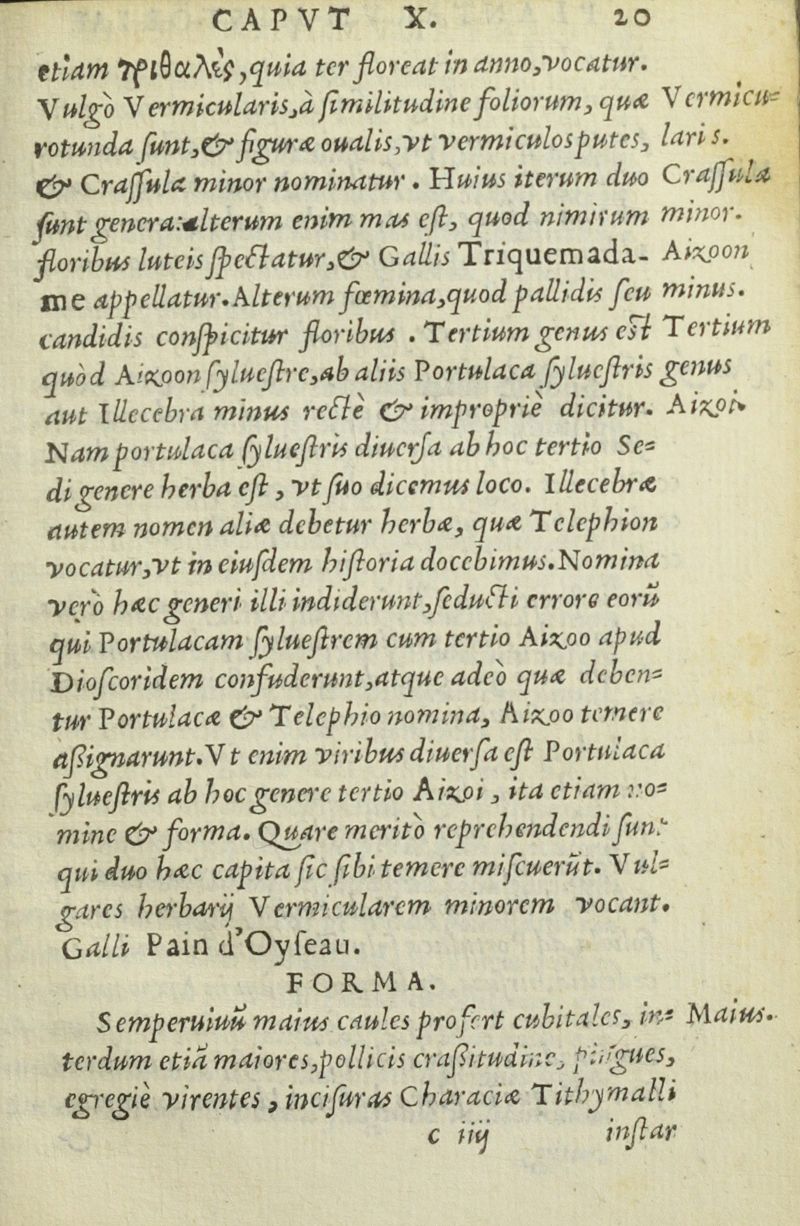 CAPVT X. 20
etiam τριθαλὲς, quia ter floreat in anno, vocatur.
Vulgò Vermicularis, à ſimilitudine foliorum, quæ
rotunda ſunt, & figuræ oualis, vt vermiculos putes,
& Craſſula minor nominatur. Huius iterum duo
ſunt genera: alterum enim mas eſt, quod nimirum
floribus luteis ſpectatur, & Gallis Triquemada-
me appellatur. Alterum fœmina, quod pallidis ſeu
candidis conſpicitur floribus. Tertium genus eſt
quòd Aizoon ſylueſtre, ab aliis Portulaca ſylueſtris
aut Illecebra minus rectè & impropriè dicitur.
Nam portulaca ſylueſtris diuerſa ab hoc tertio Se=
di genere herba eſt, vt ſuo dicemus loco. Illecebræ
autem nomen aliæ debetur herbæ, quæ Telephion
vocatur, vt in eiuſdem hiſtoria docebimus. Nomina
verò hæc generi illi indiderunt, ſeducti errore eorũ
qui Portulacam ſylueſtrem cum tertio Aizoo apud
Dioſcoridem confuderunt, atque adeò quæ deben=
tur Portulacæ & Telephio nomina, Aizoo temere
aßignarunt. Vt enim viribus diuerſa eſt Portulaca
ſylueſtris ab hoc genere tertio Aizoi, ita etiam no=
mine & forma. Quare meritò reprehendendi ſunt
qui duo hæc capita ſic ſibi temere miſcuerũt. Vul=
gares herbarij Vermicularem minorem vocant.
Galli Pain d'Oyſeau.
Vermicu=
laris.
Craſſula
minor.
Aizoon
minus.
Tertium
genus
Aizoi.
FORMA.
Semperuiuũ maius caules profert cubitales, in=
terdum etiã maiores, pollicis craßitudine, pingues,
egregiè virentes, inciſuras Characiæ Tithymalli
Maius.
c iiij inſtar